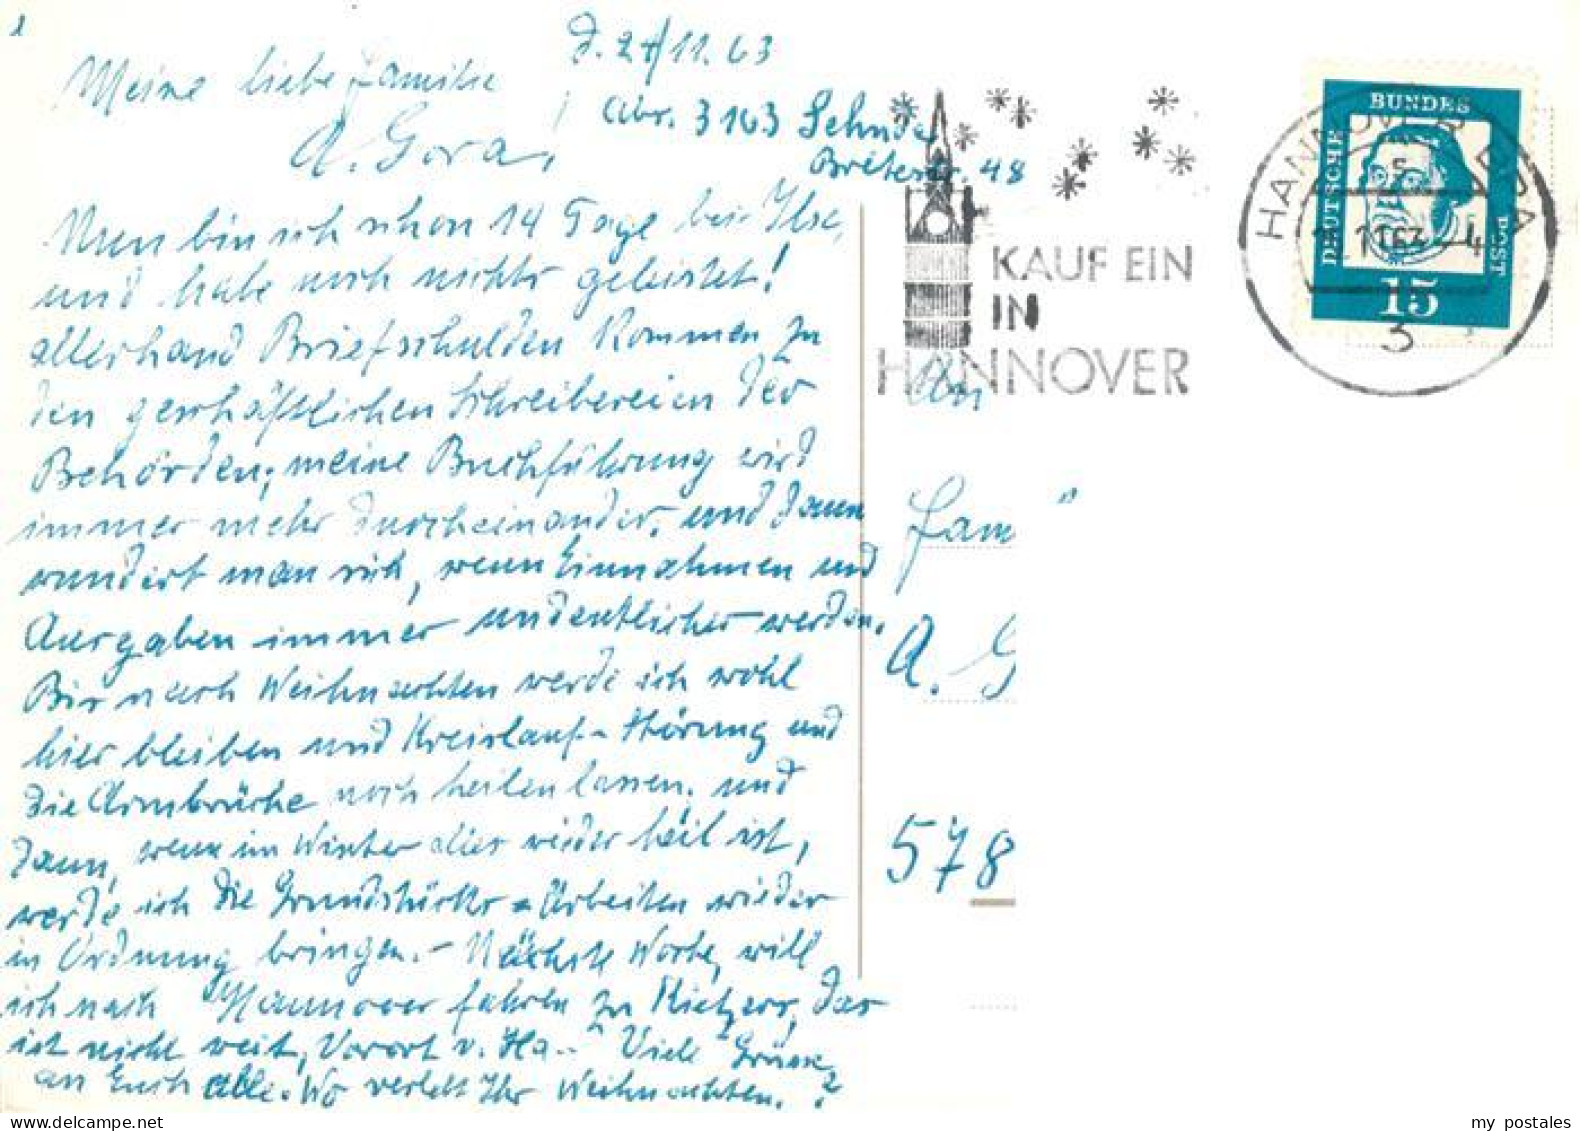 d. 24/11. 63
Meine liebe Familie
A. Gora,
Abs. 3163 Sehnde
Breitestr. 48
Nun bin ich schon 14 Tage bei Ilse,
und habe noch nichts geleistet!
allerhand Briefschulden kommen zu
den geschäftlichen Schreibereien der
Behörden; meine Buchführung wird
immer mehr durcheinander, und dann
wundert man sich, wenn Einnahmen und
Ausgaben immer undeutlicher werden.
Bis nach Weihnachten werde ich wohl
hier bleiben und Kreislauf-Störung und
die Armbrüche noch heilen lassen. und
dann, wenn im Winter alles wieder heil ist,
werde ich die Grundstücks-Arbeiten wieder
in Ordnung bringen. - Nächste Woche, will
ich nach Hannover fahren zu, das
ist nicht weit, Vorort v. Ha.- Viele Grüsse
an Euch alle. Wo verlebt Ihr Weihnachten.?
KAUF EIN
IN
HANNOVER
HANNOVER
BUNDES
DEUTSCHE
POST
15
3
An
Fam
A. G
578
my postales